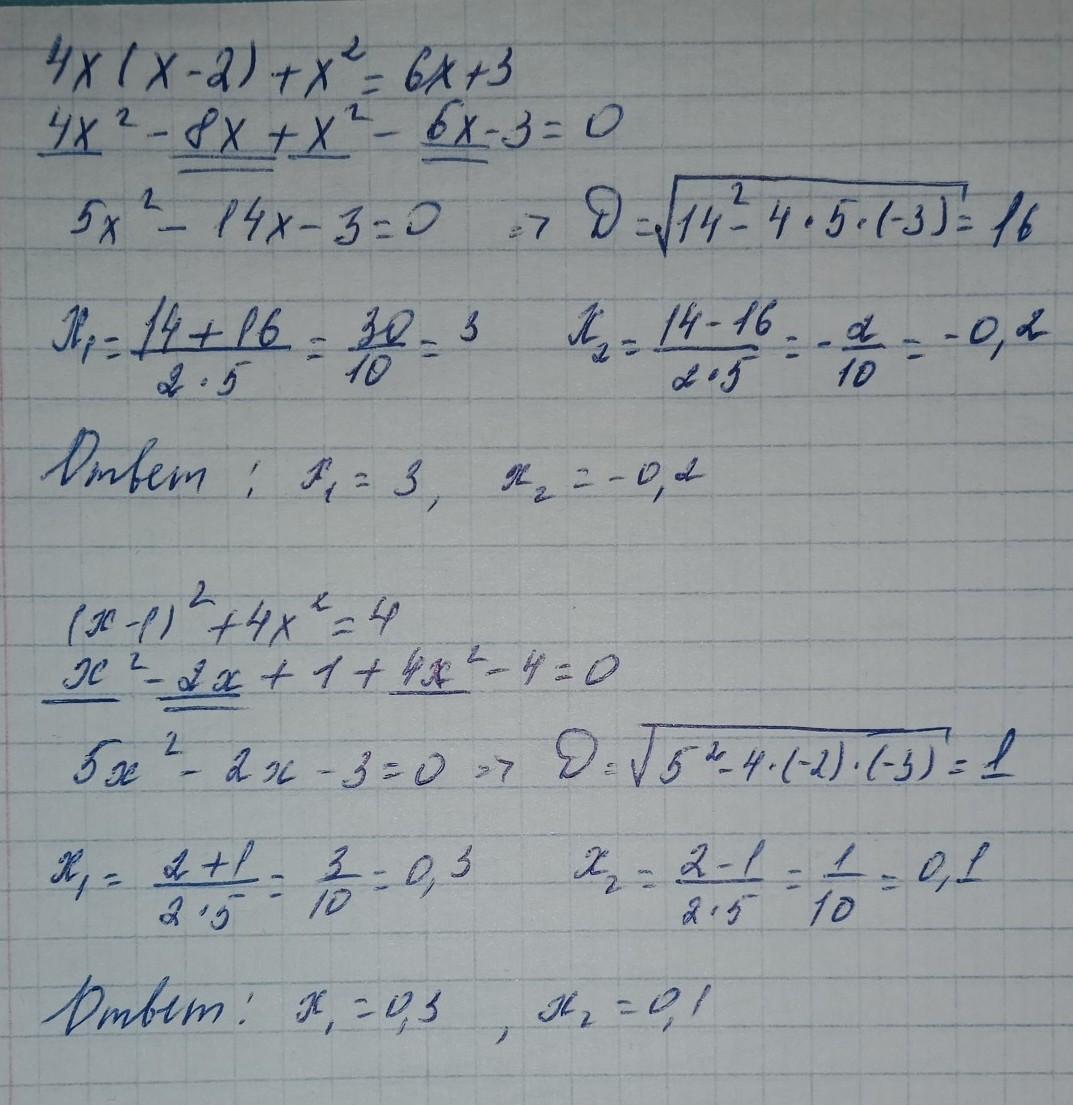 4x(x-2)+x²=6x+3
4x²-8x+x²-6x-3=0
5x²-14x-3=0 => D=√(14²-4·5·(-3))=16
x₁=(14+16)/(2·5)=30/10=3 x₂=(14-16)/(2·5)=-2/10=-0,2
Ответ: x₁=3, x₂=-0,2
(x-1)²+4x²=4
x²-2x+1+4x²-4=0
5x²-2x-3=0 => D=√(5²-4·(-2)·(-3))=1
x₁=(2+1)/(2·5)=3/10=0,3 x₂=(2-1)/(2·5)=1/10=0,1
Ответ: x₁=0,3, x₂=0,1